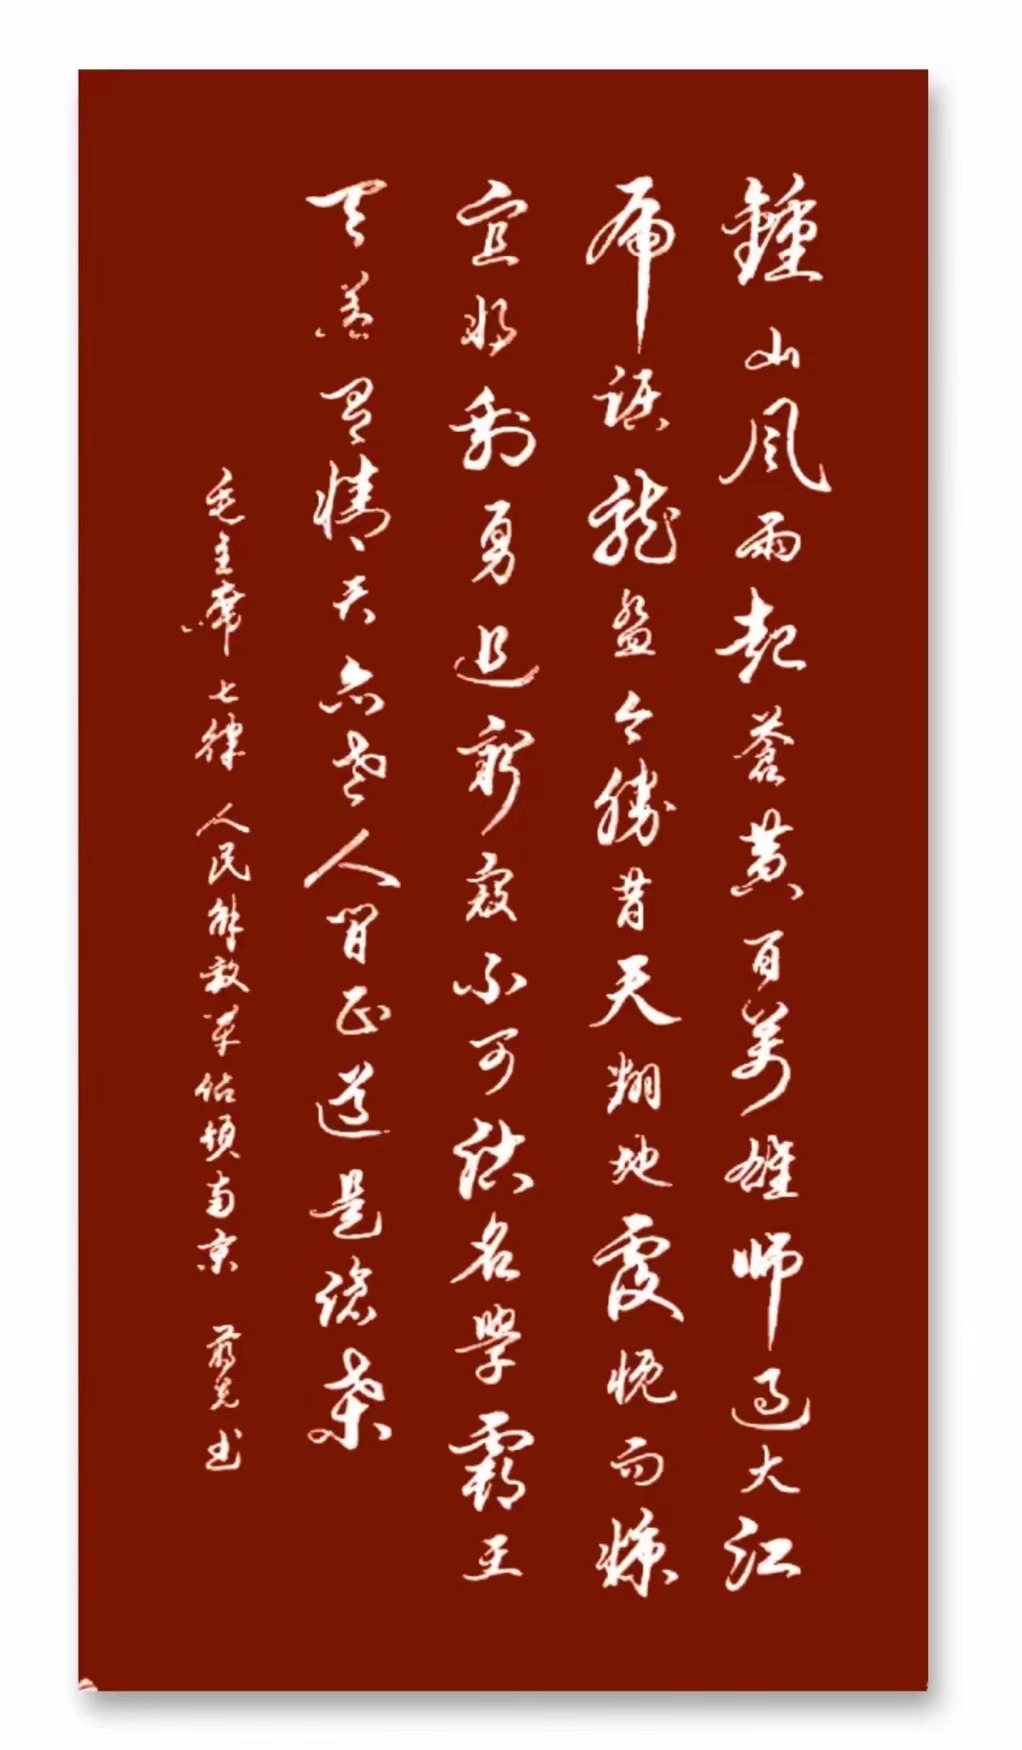 鍾山風雨起蒼黃百萬雄師過大江
虎踞龍盤今勝昔天翻地覆慨而慷
宜將剩勇追窮寇不可沽名學霸王
天若有情天亦老人間正道是滄桑
毛主席七律 人民解放軍佔領南京 书